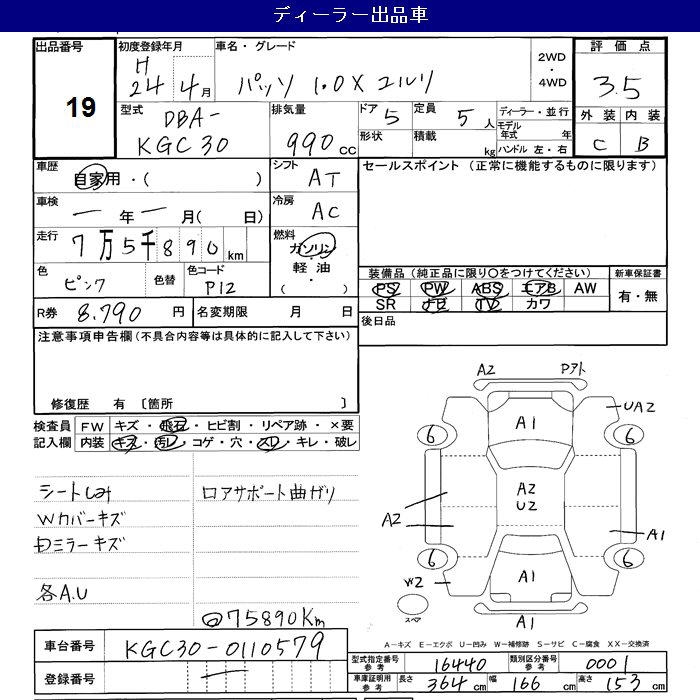 ディーラー出品車
出品番号
19
初度登録年月
H
24 4月
車名・グレード
パッソ 1.0X ユルリ
2WD
・
4WD
評価点
3.5
外装 内装
C B
型式
DBA-
KGC30
排気量
990 cc
ドア 5
形状
定員 5 人
積載 kg
ディーラー・並行
モデル年式 年
ハンドル 左・右
車歴
自家用・( )
シフト AT
車検
― 年 ― 月( 日)
冷房 AC
走行 7万5千890km
燃料
ガソリン
・
軽油
・
色 ピンク
色替
色コード P12
R券 8,790 円
名変期限 月 日
セールスポイント (正常に機能するものに限ります)
装備品(純正品に限り○をつけてください)
PS PW ABS エアB AW
SR ナビ TV カワ
新車保証書
有・無
後日品
注意事項申告欄(不具合内容等は具体的に記入して下さい)
修復歴 有 〔箇所 〕
検査員記入欄
FW キズ・飛石・ヒビ割・リペア跡・×要
内装 キズ・汚レ・コゲ・穴・スレ・キレ・破レ
シートしみ
Wカバーキズ
ロアサポート曲ガリ
各A.U
@75890Km
A2 Pアト
A1
UA2
6 6
A2
U2
A2
A1
6 6
W2
A1
スペア
A1
A-キズ E-エクボ U-凹み W-補修跡 S-サビ C-腐食 XX-交換済
車台番号 KGC30-0110579
登録番号 ―
型式指定番号参考 16440
類別区分番号参考 0001
車庫証明用参考 長さ 364 cm 幅 166 cm 高さ 153 cm